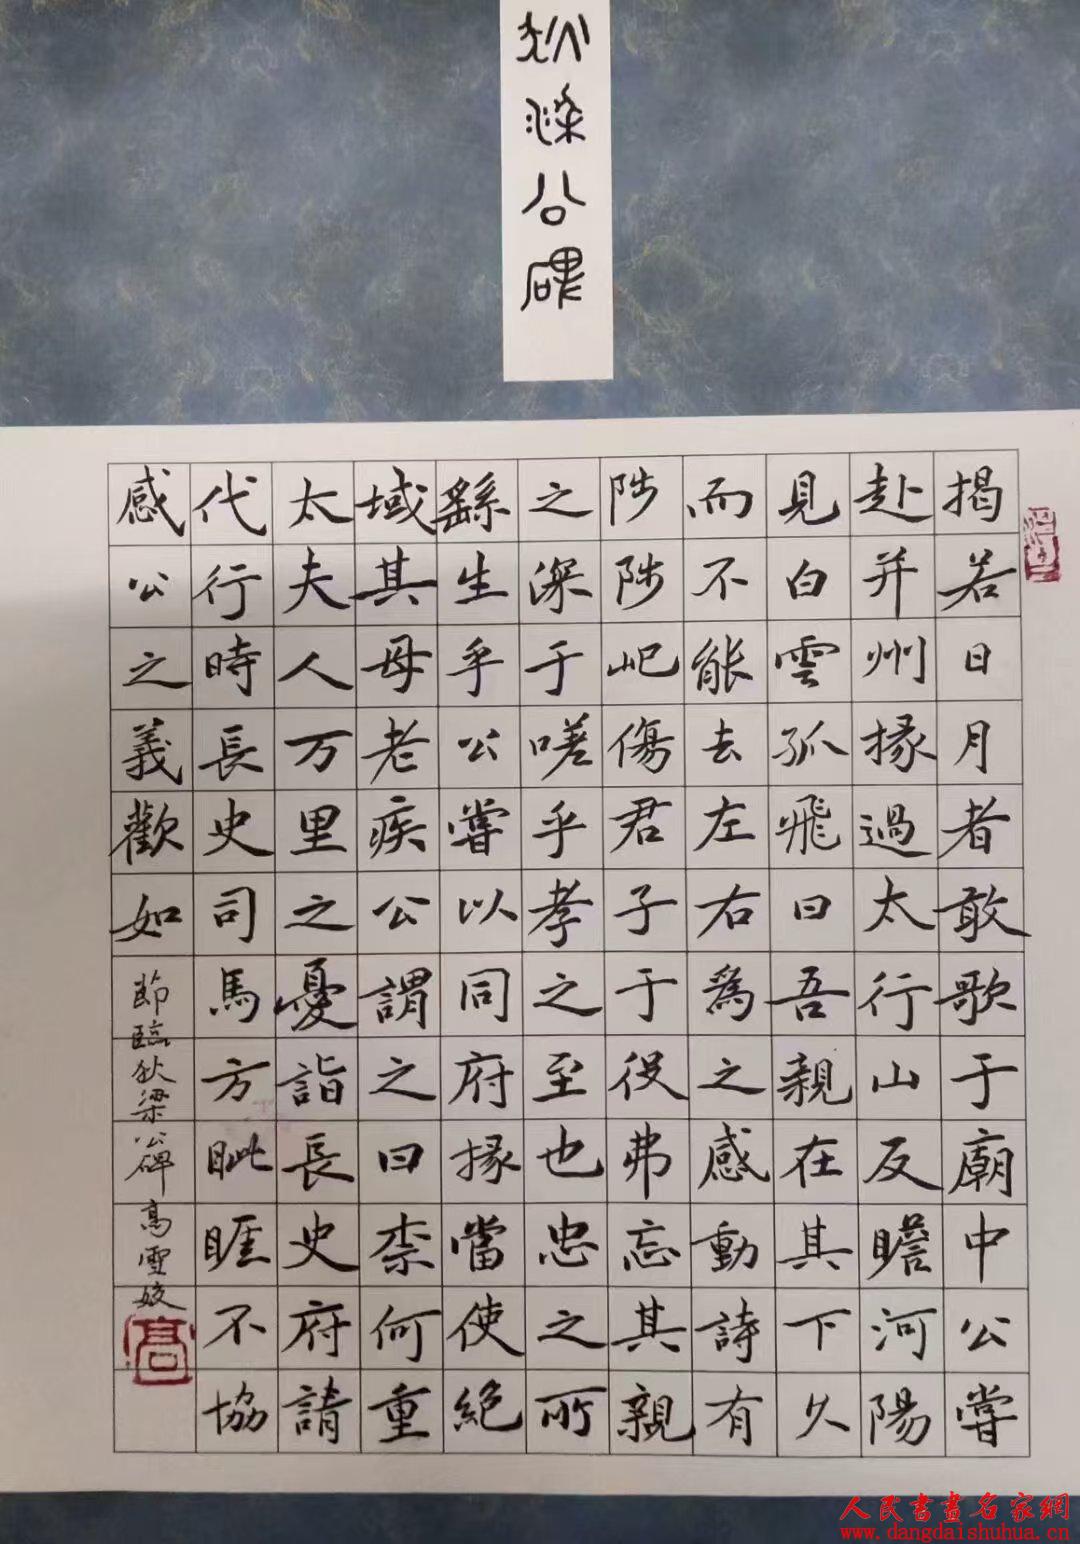 狄梁公碑
揭若日月者敢歌于廟中公嘗
赴并州掾過太行山反瞻河陽
見白雲孤飛曰吾親在其下久
而不能去左右為之感動詩有
陟陟屺傷君子于役弗忘其親
之深于嗟乎孝之至也忠之所
繇生乎公嘗以同府掾當使絕
域其母老疾公謂之曰柰何重
太夫人万里之憂詣長史府請
代行時長史司馬方眦睚不協
感公之義歡如
節臨狄梁公碑高雪姣
高
人民書畫名家網
www.dangdaishuhua.cn